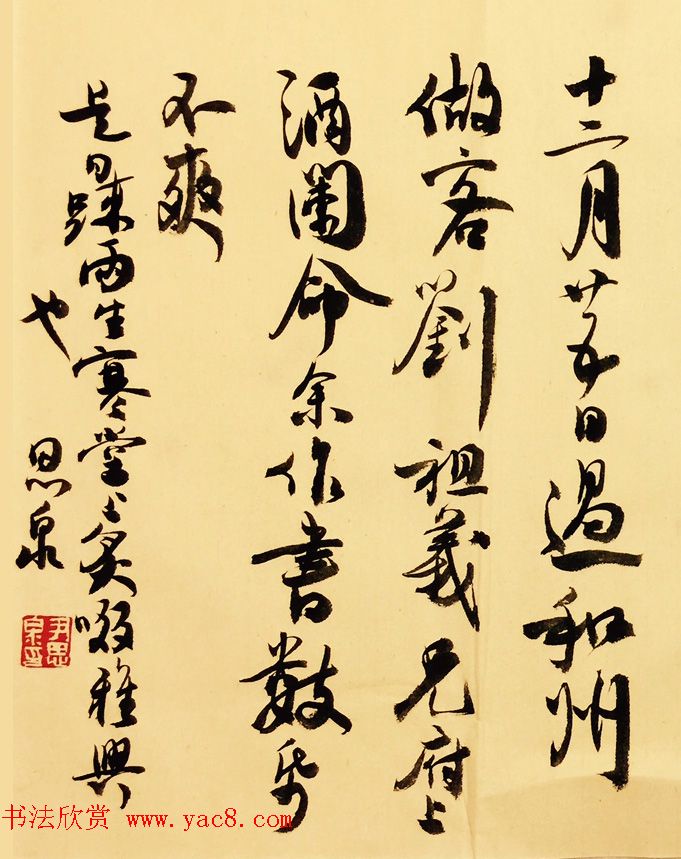 十二月廿五日過和州
做客劉祖義兄府上
酒闌命余作書數帋
不爽
是日踈雨生寒堂上炙啜雅興
也 思泉
尹思泉印
书法欣赏 www.yac8.com